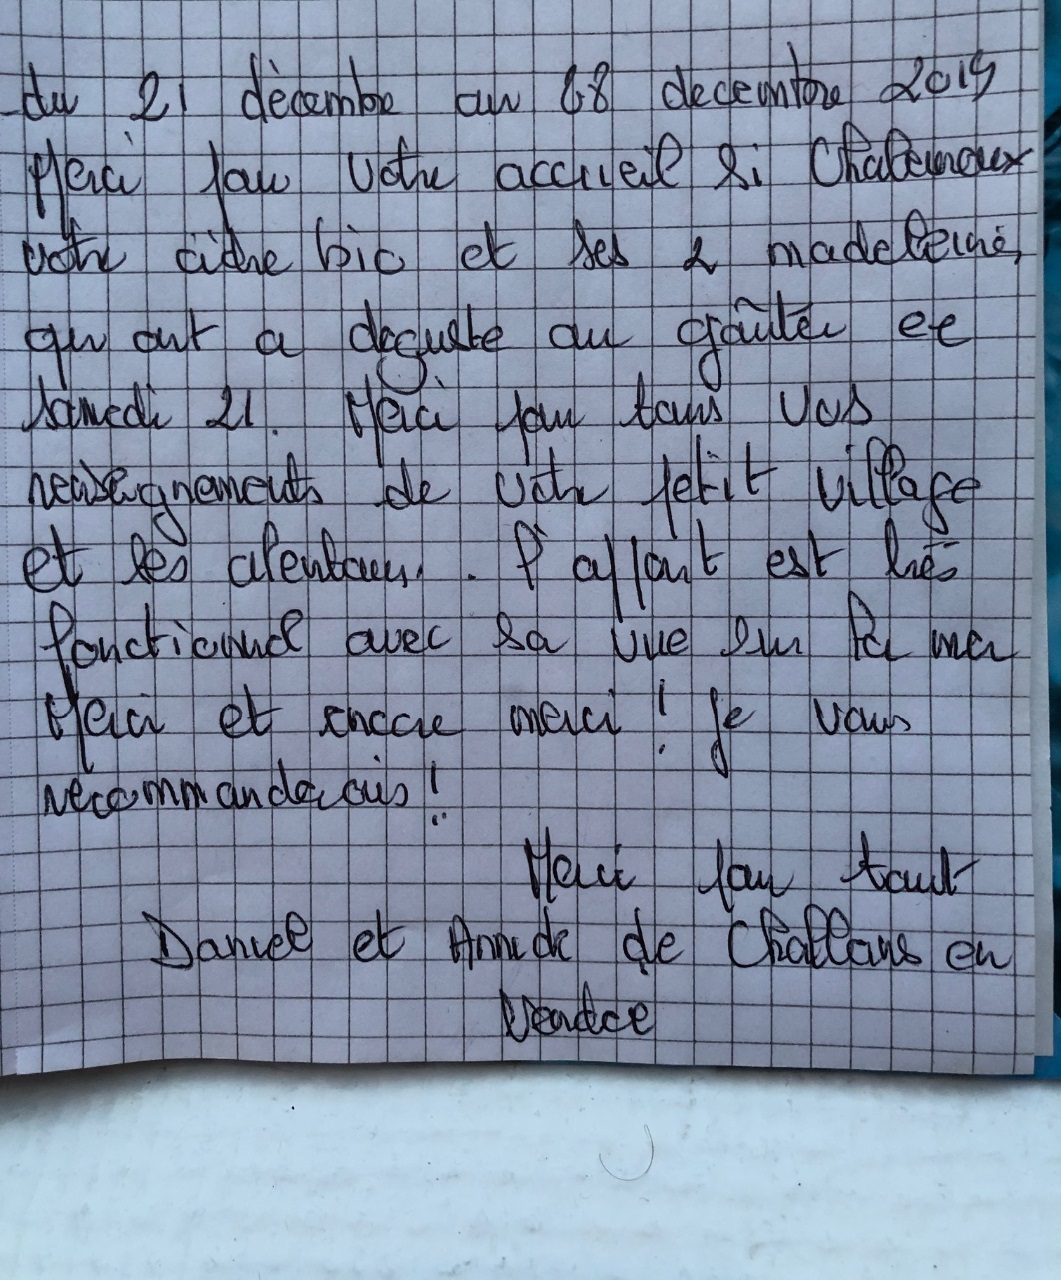 du 21 décembre au 28 decembre 2019
Merci pour votre accueil si chaleureux
votre cidre bio et ses 2 madeleines
qu'ont a deguste au goûter ce
samedi 21. Merci pour tous vos
renseignements de votre petit village
et les alentours. l'appart est très
fonctionnel avec sa vue sur la mer
Merci et encore merci ! je vous
recommanderais !
Merci pour tout
Daniel et Annick de Challans en
Vendée